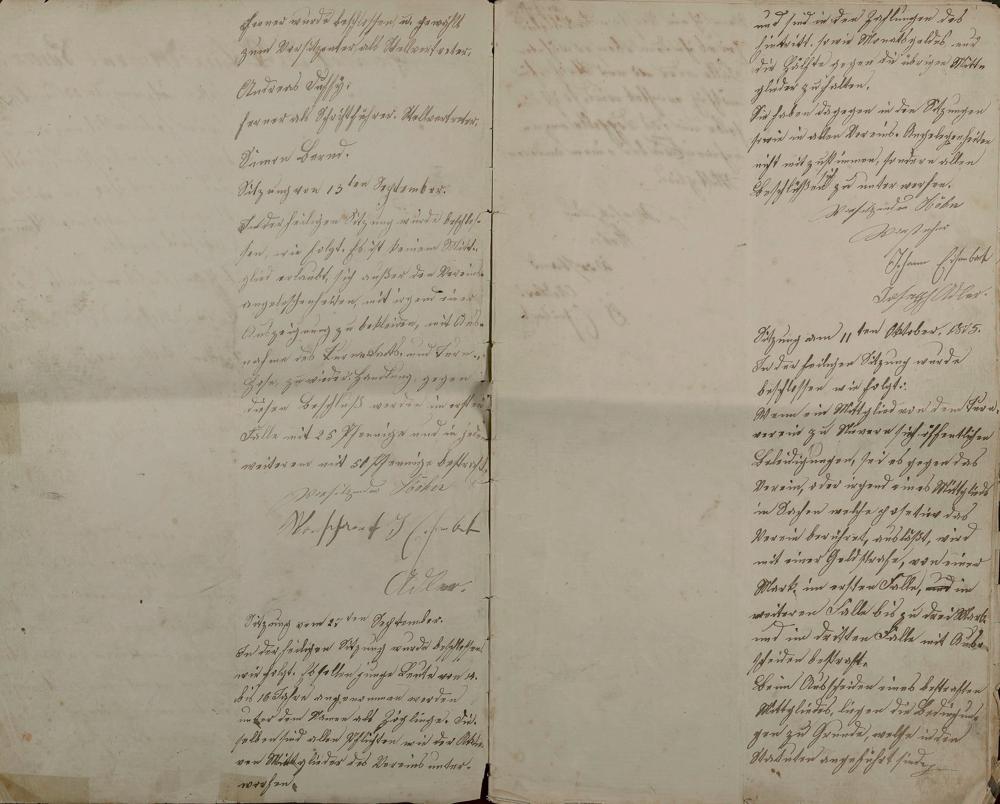 Ferner wurde beschlossen u. gewählt
zum Vorsitzenter als Stellvertreter.
Andreas
ferner als Schriftführer. Stellvertreter.
Simon Bernd.
Sitzung von 13ten September.
In der heiligen Sitzung wurde beschlos-
sen, wie folgt. Es ist keinem Mitt-
glied erlaubt, sich außer den Vereins-
angelegenheiten, mit irgend einer
Auszeignung zu bekleiden, mit Aus-
nahme des und Turn-
Hose, zuwieder Handlung, gegen
diesen Beschluß werden im ersten
Falle mit 25 Pfennige und in
weiteren mit 50 Pfennige bestraft.
Vorsitzender
Adler.
Sitzung vom 27ten September.
In der heiligen Sitzung wurde beschlossen
wie folgt. Es sollen junge Leute von 14.
bis 16 Jahre angenommen werden
unter dem Namen als Zöglinge. Die-
selben sind allen Pflichten wie der Akti-
ven Mittglieder des Vereins unter-
worfen.
und sind in den Zahlungen des
Eintritt. sowie Monatsgeldes, nur
die Hälfte gegen die übrigen Mitt-
glieder zu halten.
Sie haben dagegen in den Sitzungen
sowie in allen Vereins-Angelegenheiten
nicht mit zustimmen, sondern allen
Beschlüßen zu unter werfen.
Vorsitzender
Johann
Joseph Adler.
Sitzung am 11ten Oktober. 1875.
In der heiligen Sitzung wurde
beschlossen wie folgt:
Wenn ein Mittglied von dem Turn-
verein zu sich öffentlichen
Beleidigungen, sei es gegen das
Verein, oder irgend eines Mittglieds
in Sachen welche posetiv das
Verein berühret, ausläßt, wird
mit einer Geldstrafe, von einer
Mark, im ersten Falle, in
weiteren Falle bis zu drei Mark
und im dritten Falle mit Auß-
scheiden bestraft.
Beim Ausscheiden eines bestraften
Mittgliedes, liegen die Bedingun-
gen zu Grunde, welche in den
Statuten angeführt sind.